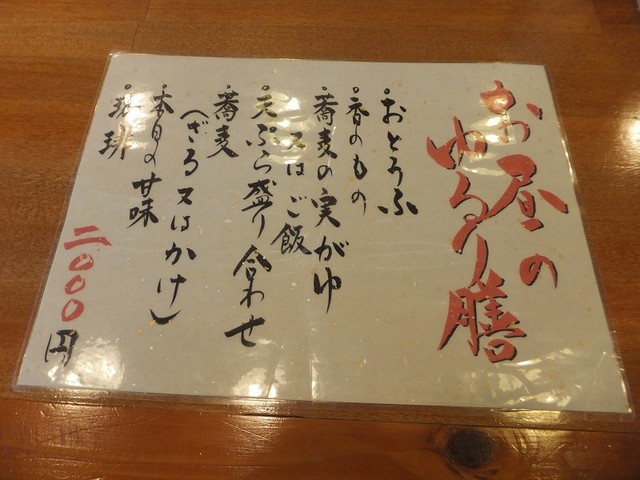 お昼の
ゆるり膳
・おとうふ
・香のもの
・蕎麦の実がゆ
又はご飯
・天ぷら盛り合わせ
・蕎麦
(ざる又はかけ)
・本日の甘味
・珈琲
二〇〇〇円